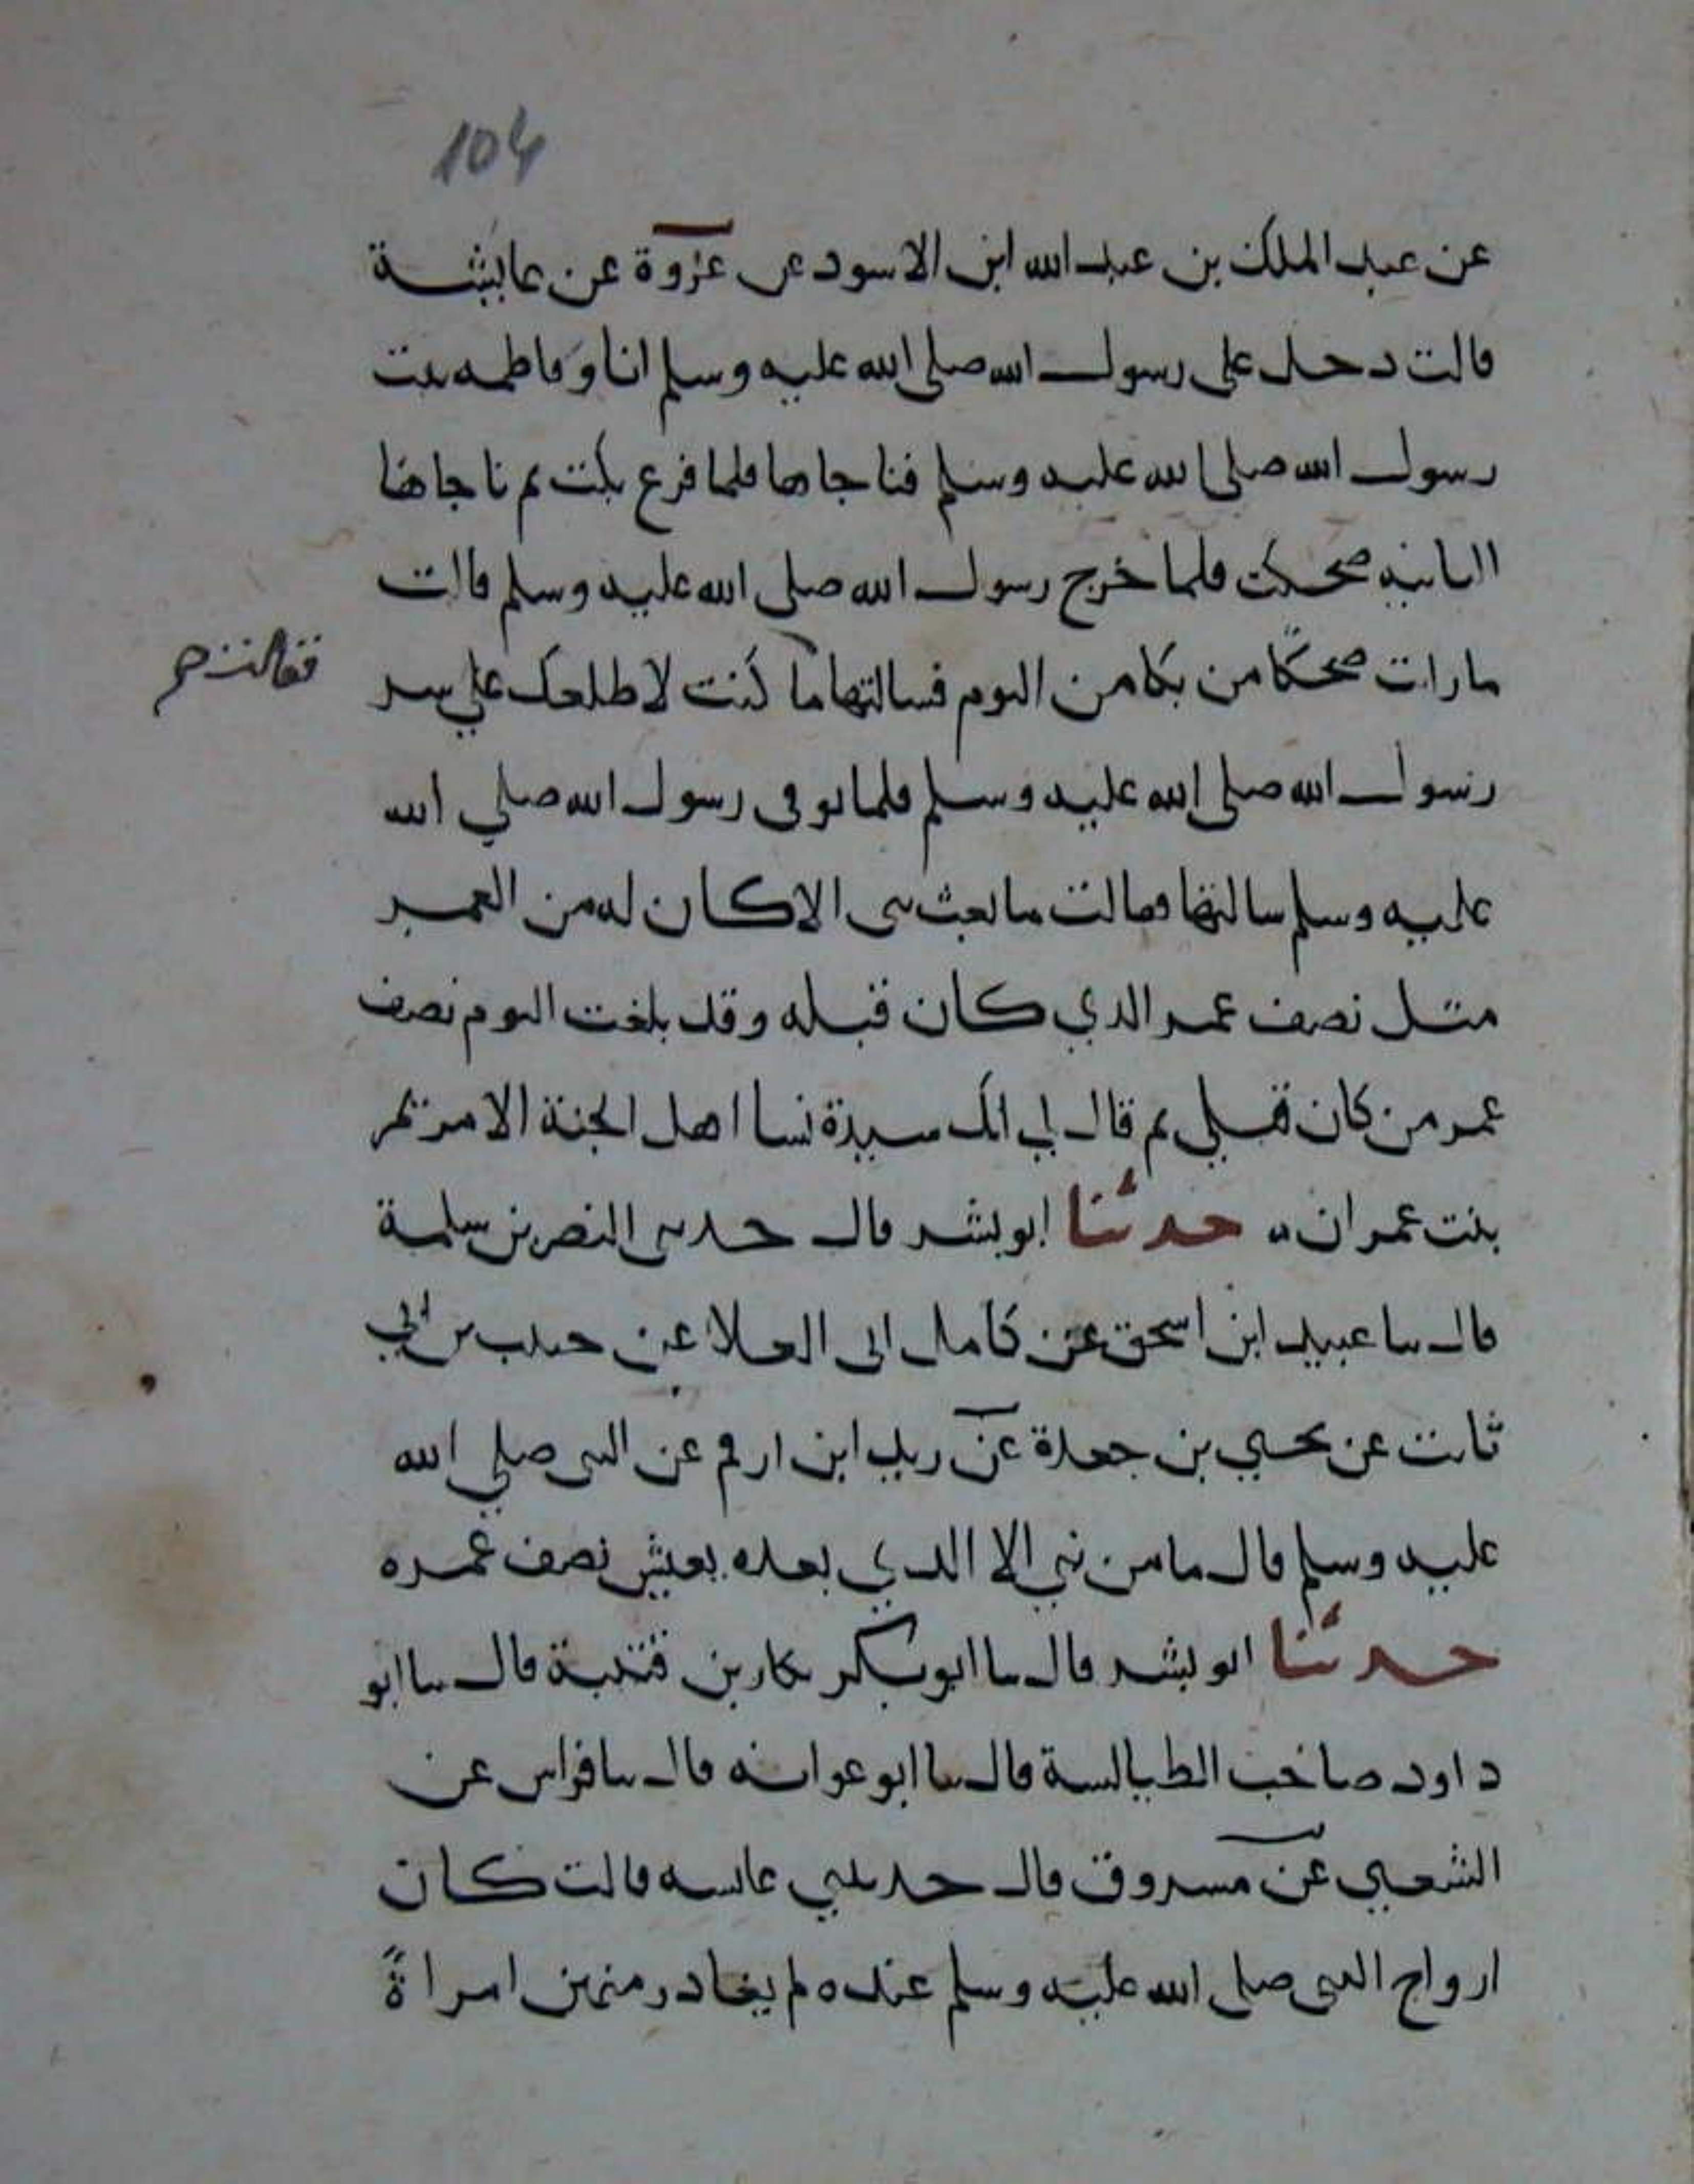 104
عن عبد الملك بن عبد الله ابن الاسود عن عروة عن عايشة
قالت دخل على رسول الله صلى الله عليه وسلم انا وفاطمه بنت
رسول الله صلى الله عليه وسلم فناجاها فلما فرغ بكت ثم ناجاها
الثانيه ضحكت فلما خرج رسول الله صلى الله عليه وسلم قالت
مارات ضحكًا من بكا من اليوم فسالتها ما كنت لاطلعك علي سر
فقالت صح
رسول الله صلى الله عليه وسلم فلما توفى رسول الله صلي الله
عليه وسلم سالتها فقالت ما بعث نبى الا كان له من العمر
مثل نصف عمر الذي كان قبله وقد بلغت اليوم نصف
عمر من كان قبلي ثم قال لي انك سيدة نسا اهل الجنة الا مريم
بنت عمران حدثنا ابو بشر قال حدثنى النضر بن سلمة
قال نا عبيد ابن اسحق عن كامل ابى العلا عن حبيب بن ابي
ثابت عن يحيي بن جعدة عن زيد ابن ارقم عن النبى صلي الله
عليه وسلم قال ما من نبي الا الذي بعده يعيش نصف عمره
حدثنا ابو بشر قال نا ابو بكر بكار بن قتيبة قال نا ابو
داود صاحب الطيالسة قال نا ابو عوانه قال نا فراس عن
الشعبي عن مسروق قال حدثتني عائشه قالت كان
ازواج النبى صلى الله عليه وسلم عنده لم يغادر منهن امراةً